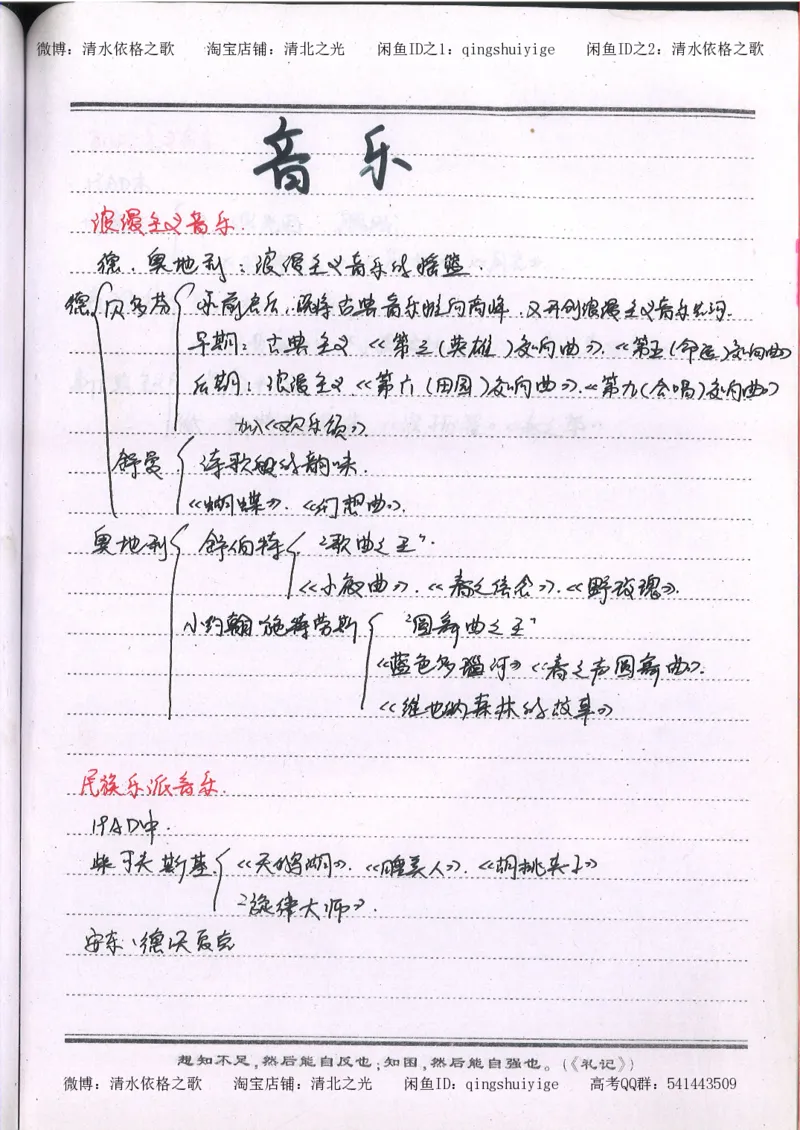 微博：清水依格之歌 淘宝店铺：清北之光 闲鱼ID之1：qingshuiyige 闲鱼ID之2：清水依格之歌
音乐
浪漫主义音乐
德、奥地利：浪漫主义音乐的摇篮．
德 贝多芬 承前启后，既将古典音乐推向高峰，又开创浪漫主义音乐先河．
早期：古典主义 《第三（英雄）交响曲》．《第五（命运）交响曲》
后期：浪漫主义《第六（田园）交响曲》．《第九（合唱）交响曲》
加入《欢乐颂》
舒曼 诗歌般的韵味．
《蝴蝶》．《幻想曲》．
奥地利 舒伯特 "歌曲之王"．
《小夜曲》．《春之信念》．《野玫瑰》．
小约翰·施特劳斯 "圆舞曲之王"
《蓝色多瑙河》《春之声圆舞曲》．
《维也纳森林的故事》
民族乐派音乐．
19AD中．
柴可夫斯基 《天鹅湖》．《睡美人》．《胡桃夹子》
"旋律大师"．
安东·德沃夏克
想知不足，然后能自反也；知困，然后能自强也。（《礼记》）
微博：清水依格之歌 淘宝店铺：清北之光 闲鱼ID：qingshuiyige 高考QQ群：541443509